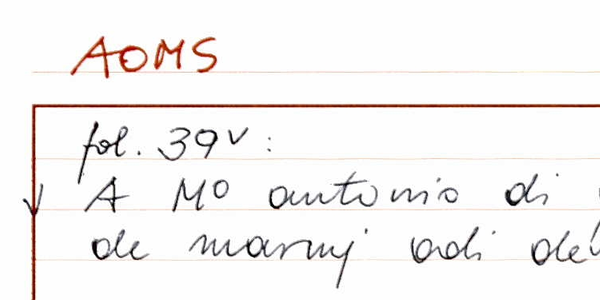 AOMS
fol. 39v :
A Mo antonio di
de marmj adi de